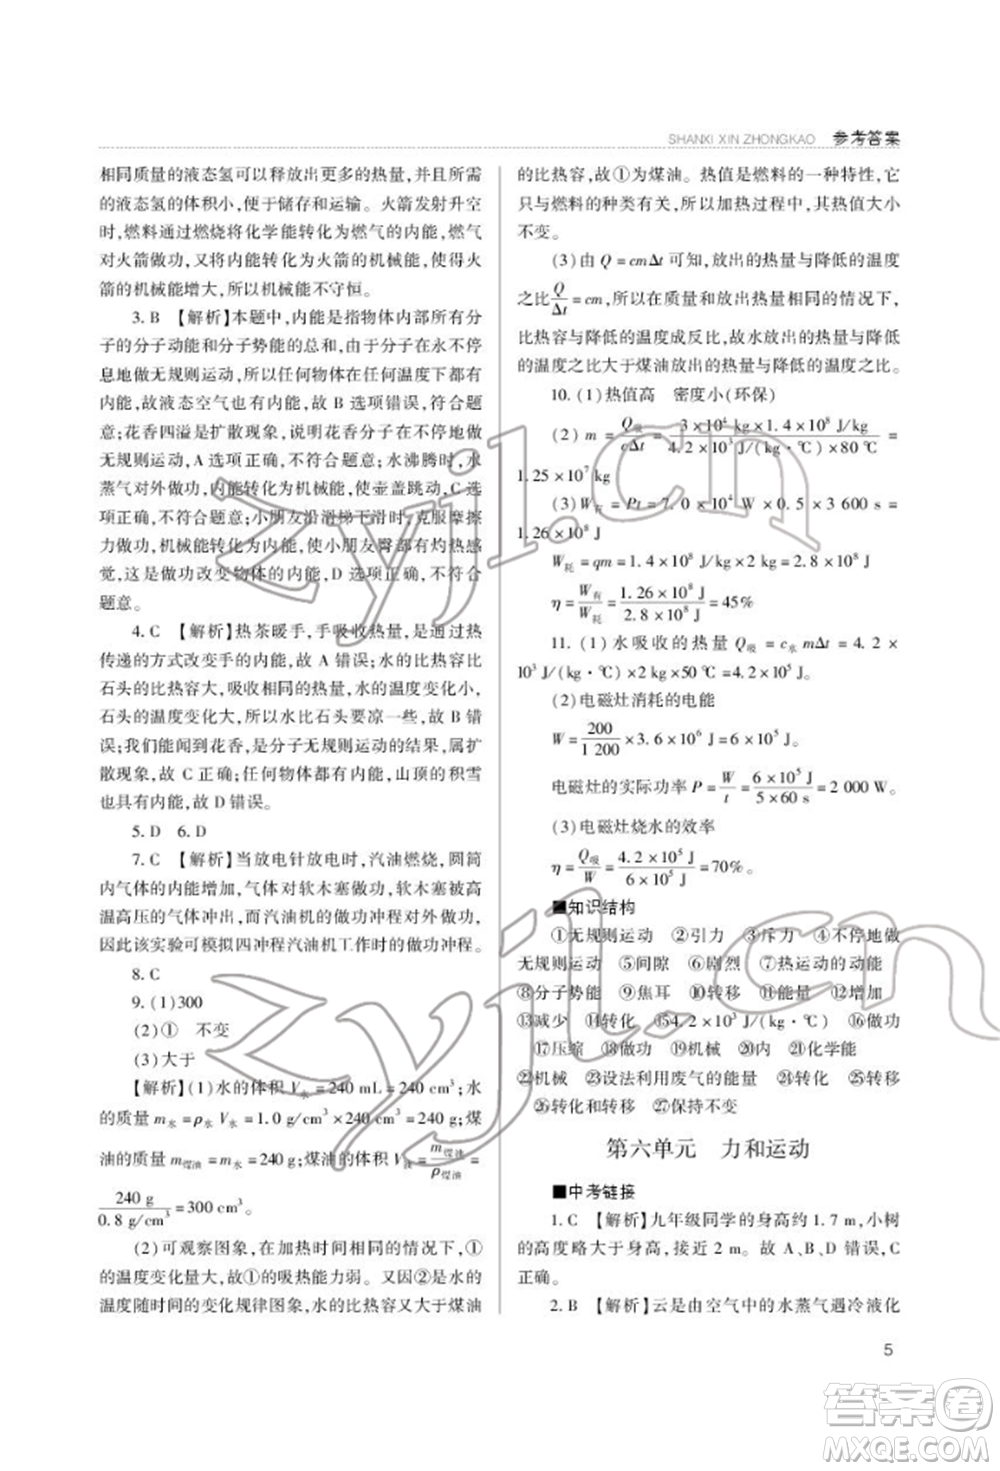 SHANXI XIN ZHONGKAO 参考答案
相同质量的液态氢可以释放出更多的热量,并且同质量
的液态氢的体积小,便于储存和运输。火箭发射升空
时,燃料通过燃烧将化学能转化为燃气的内能,燃气
对火箭做功,又将内能转化为火箭的机械能,使得火
箭的机械能增大,所以机械能不守恒。
3. B 【解析】本题中,内能是指物体内部所有分
子的分子动能和分子势能的总和,由于分子在不停
息地做无规则运动,所以任何物体在任何温度下都有
内能,故液态空气也有内能,故 B 选项错误,符合题
意;花香四溢是扩散现象,说明花香分子在不停地做
无规则运动,A 选项正确,不符合题意;水沸腾时,水
蒸气对外做功,内能转化为机械能,使壶盖跳动,C 选
项正确,不符合题意;小朋友沿滑梯下滑时,克服摩擦
力做功,机械能转化为内能,使小朋友臀部有灼热感
觉,这是做功改变物体的内能,D 选项正确,不符合
题意。
4. C 【解析】热茶暖手,手吸收热量,是通过热
传递的方式改变手的内能,故 A 错误;水的比热容比
石头的比热容大,吸收相同的热量,水的温度变化小,
石头的温度变化大,所以水比石头要凉一些,故 B 错
误;我们能闻到花香,是分子无规则运动的结果,属扩
散现象,故 C 正确;任何物体都有内能,山顶的积雪
也具有内能,故 D 错误。
5. D 6. D
7. C 【解析】当放电针放电时,汽油燃烧,圆筒
内气体的内能增加,气体对软木塞做功,软木塞被高
温高压的气体冲出,而汽油机的做功冲程对外做功,
因此该实验可模拟四冲程汽油机工作时的做功冲程。
8. C
9. (1)300
(2)① 不变
(3)大于
【解析】(1)水的体积 V水 = 240 mL = 240 cm³;水
的质量 m水 = ρ水 V水 = 1.0 g/cm³ × 240 cm³ = 240 g;煤
油的质量 m煤油 = m水 = 240 g;煤油的体积 V油 = m煤油/ρ煤油 =
240 g/0.8 g/cm³ = 300 cm³。
(2)可观察图象,在加热时间相同的情况下,①
的温度变化量大,故①的吸热能力弱。又因②是水的
温度随时间的变化规律图象,水的比热容又大于煤油
的比热容,故①为煤油。热值是燃料的一种特性,它
只与燃料的种类有关,所以加热过程中,其热值大小
不变。
(3)由 Q = cmΔt 可知,放出的热量与降低的温度
之比 Q/Δt = cm,所以在质量和放出热量相同的情况下,
比热容与降低的温度成反比,故水放出的热量与降低
的温度之比大于煤油放出的热量与降低的温度之比。
10. (1)热值高 密度小(环保)
(2) m = Q吸/cΔt = 3×10⁴ kg×1.4×10⁸ J/kg / 4.2×10³ J/(kg·℃)×80 ℃ =
1.25×10⁷ kg
(3)W有 = Pt = 7.0×10⁴ W×0.5×3 600 s =
1.26×10⁸ J
W耗 = qm = 1.4×10⁸ J/kg×2 kg = 2.8×10⁸ J
η = W有/W耗 = 1.26×10⁸ J/2.8×10⁸ J = 45%
11. (1)水吸收的热量 Q吸 = c水 mΔt = 4.2 ×
10³ J/(kg·℃)×2 kg×50 ℃ = 4.2×10⁵ J。
(2)电磁灶消耗的电能
W = 200/1 200 × 3.6×10⁶ J = 6×10⁵ J。
电磁灶的实际功率 P = W/t = 6×10⁵ J/5×60 s = 2 000 W。
(3)电磁灶烧水的效率
η = Q吸/W = 4.2×10⁵ J/6×10⁵ J = 70%。
■知识结构
①无规则运动 ②引力 ③斥力 ④不停地做
无规则运动 ⑤间隙 ⑥剧烈 ⑦热运动的动能
⑧分子势能 ⑨焦耳 ⑩转移 ⑪能量 ⑫增加
⑬减少 ⑭转化 ⑮4.2×10³ J/(kg·℃) ⑯做功
⑰压缩 ⑱做功 ⑲机械 ⑳内 ㉑化学能
㉒机械 ㉓设法利用废气的能量 ㉔转移 ㉕转化
㉖转化和转移 ㉗保持不变
第六单元 力和运动
■中考链接
1. C 【解析】九年级同学的身高约 1.7 m,小树
的高度略大于身高,接近 2 m。故 A、B、D 错误,C
正确。
2. B 【解析】云是由空气中的水蒸气遇冷液化
5
zyjl.cn
zyjl.cn
答案圈
MXQE.COM